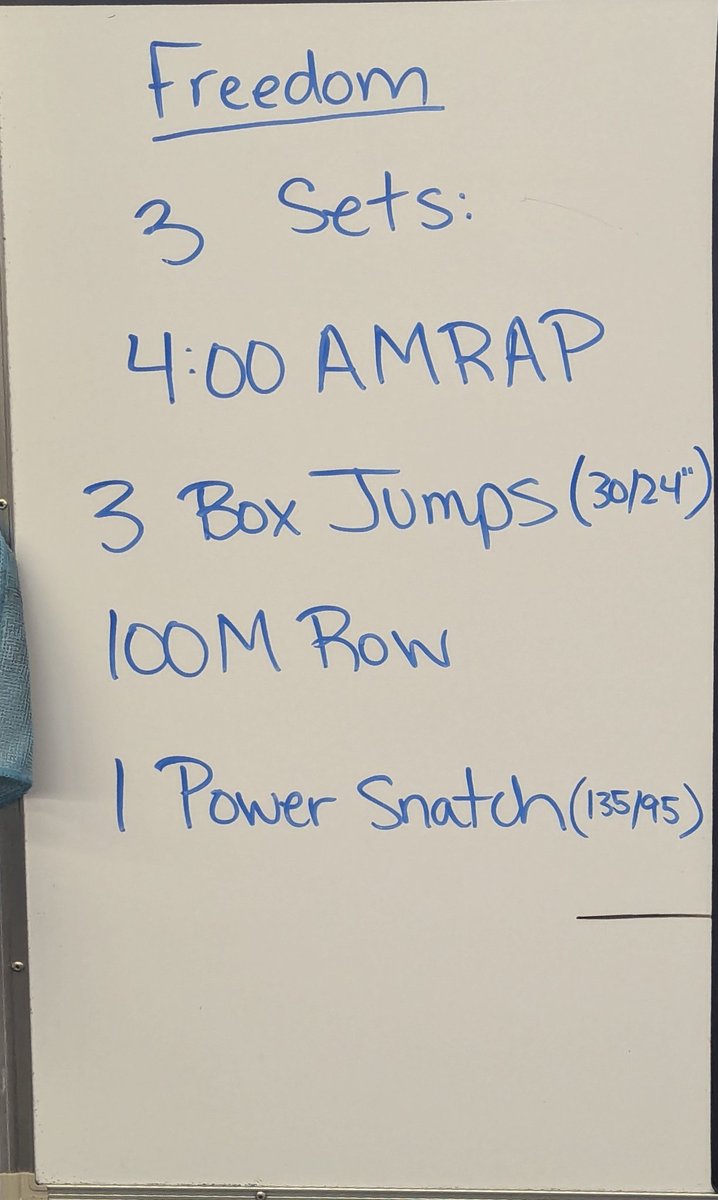 Freedom
3 Sets:
4:00 AMRAP
3 Box Jumps (30/24")
100M Row
1 Power Snatch (135/95)